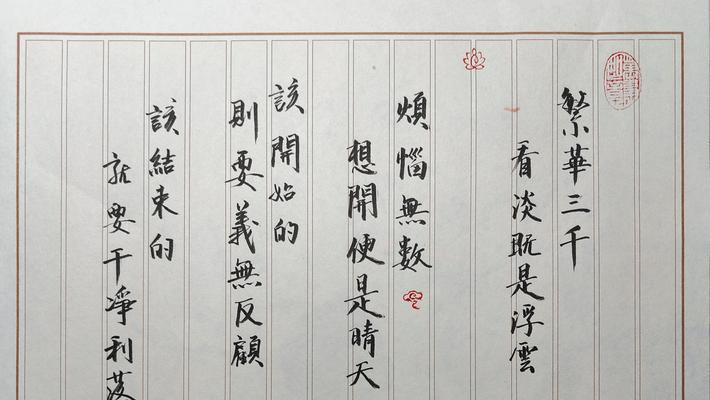 繁華三千
看淡既是浮雲
煩惱無數
想開便是晴天
該開始的
則要義無反顧
該結束的
就要干凈利落